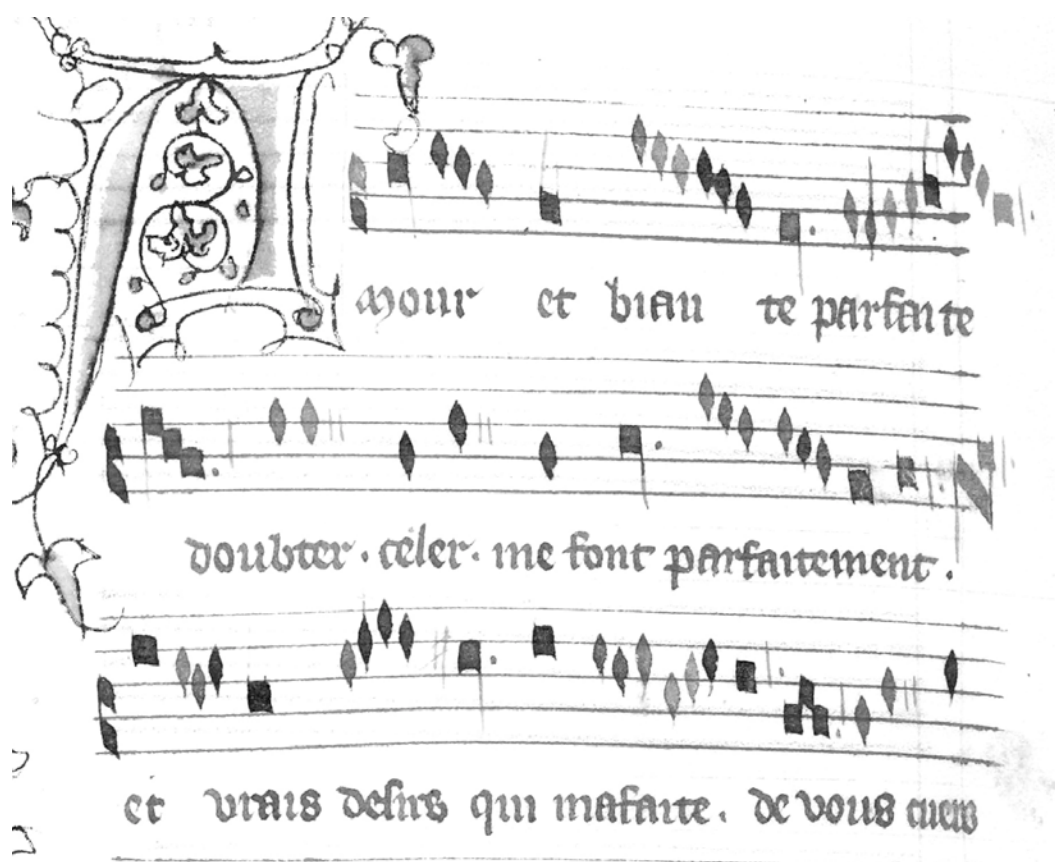 Amour et biaute parfaite
doubter . celer . me font parfaitement .
et vrais desirs qui mafaite . de vous cuers